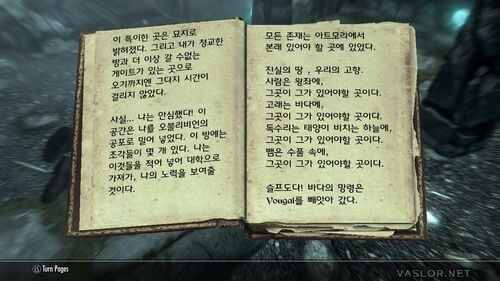 이 특이한 곳은 묘지로
밝혀졌다. 그리고 내가 정교한
방과 더 이상 갈 수없는
게이트가 있는 곳으로
오기까지엔 그다지 시간이
걸리지 않았다.
사실... 나는 안심했다! 이
공간은 나를 오블리비언의
공포로 밀어 넣었다. 이 방에는
조각들이 몇 개 있다. 나는
이것들을 적어 넣어 대학으로
가져가, 나의 노력을 보여줄
것이다.
모든 존재는 아트모라에서
본래 있어야 할 곳에 있었다.
진실의 땅 , 우리의 고향.
사람은 왕좌에,
그곳이 그가 있어야할 곳이다.
고래는 바다에,
그곳이 그가 있어야할 곳이다.
독수리는 태양이 비치는 하늘에,
그곳이 그가 있어야할 곳이다.
뱀은 수풀 속에,
그곳이 그가 있어야할 곳이다.
슬프도다! 바다의 망령은
Yougal를 빼앗아 갔다.
LS Turn Pages
VASLOR.NET